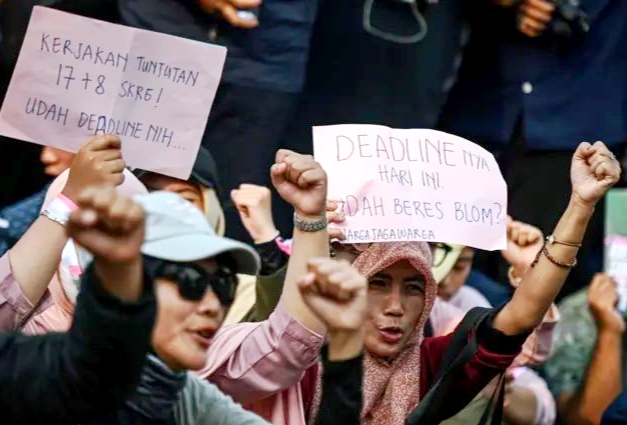 KERJAKAN TUNTUTAN
17+8 SKRG!
UDAH DEADLINE NIH...
DEADLINE NYA
HARI INI.
UDAH BERES BLOM?
WARGAJAGAWARGA